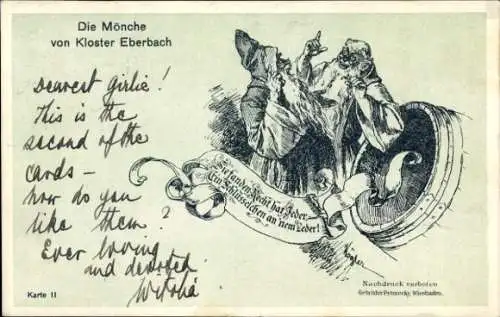 Die Mönche
von Kloster Eberbach
Dearest Girlie!
This is the
second of the
cards –
how do you
like them?
Ever loving
and devoted
Gefunden! Recht hat Jeder,
Ein Schlüsselchen an nem Leder!
Karte II
Nachdruck verboten
Gebrüder Petmecky, Wiesbaden.